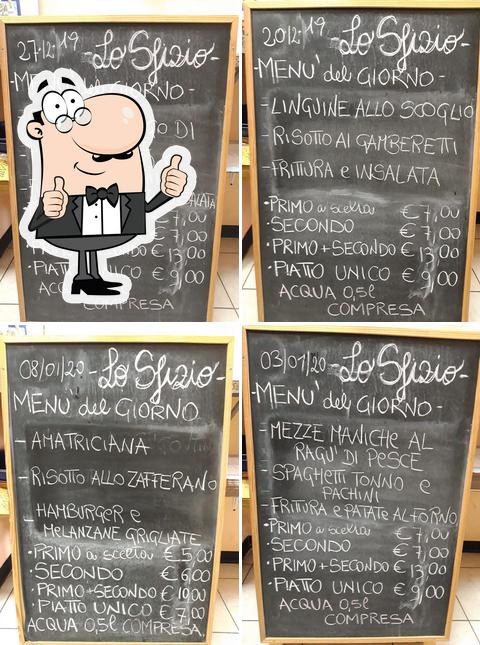 27.12.19 - Lo Sfizio -
MEN
O DI
€ 7,00
€ 7,00
€ 13,00
PIATTO UNICO € 9,00
ACQ
COMPRESA
20.12.19 - Lo Sfizio -
- MENU' del GIORNO -
- LINGUINE ALLO SCOGLIO
- RISOTTO AI GAMBERETTI
- FRITTURA e INSALATA
• PRIMO a scelta € 7,00
• SECONDO € 7,00
• PRIMO + SECONDO € 13,00
• PIATTO UNICO € 9,00
ACQUA 0,5l
COMPRESA
08/01/20 - Lo Sfizio -
MENU' del GIORNO
- AMATRICIANA
- RISOTTO ALLO ZAFFERANO
- HAMBURGER e
MELANZANE GRIGLIATE
• PRIMO a scelta € 5,00
• SECONDO € 6,00
PRIMO + SECONDO € 10,00
• PIATTO UNICO € 7,00
ACQUA 0,5l COMPRESA
03/01/20 - Lo Sfizio -
- MENU' del GIORNO -
- MEZZE MANICHE AL
RAGU' DI PESCE
- SPAGHETTI TONNO e
PACHINI
- FRITTURA e PATATE AL FORNO
• PRIMO a scelta € 7,00
• SECONDO € 7,00
• PRIMO + SECONDO € 13,00
• PIATTO UNICO € 9,00
ACQUA 0,5l
COMPRESA